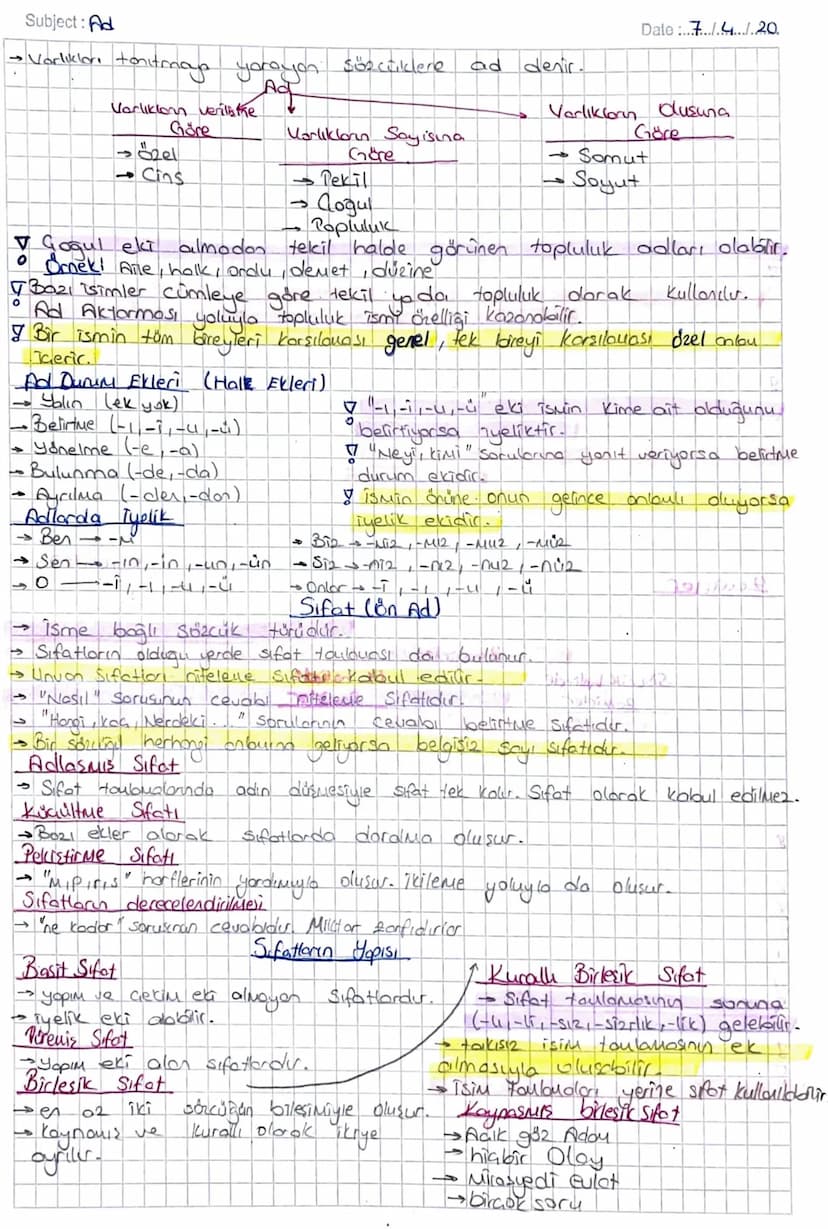 Subject : Ad
Date : 7 / 4 / 20
→ Varlıkları tanıtmaya yarayan sözcüklere ad denir.
Ad
Varlıkların verilişine Göre
→ Özel
→ Cins
Varlıkların Sayısına Göre
→ Tekil
→ Çoğul
→ Topluluk
Varlıkların Olusuna Göre
→ Somut
→ Soyut
Çoğul eki almadan tekil halde görünen topluluk adları olabilir.
Örnek! Aile, halk, ordu, demet, düzine
Bazı isimler cümleye göre tekil yada topluluk olarak kullanılır.
Ad Aktarması yoluyla topluluk ismi özelliği kazanabilir.
Bir ismin tüm bireyleri karşılaması genel, tek bireyi karşılaması özel anlam
içerir.
Ad Durum Ekleri (Halk Ekleri)
→ Yalın (ek yok)
→ Belirtme (-ı, -i, -u, -ü)
→ Yönelme (-e, -a)
→ Bulunma (-de, -da)
→ Ayrılma (-den, -dan)
"-ı, -i, -u, -ü" eki ismin kime ait olduğunu
belirtiyorsa iyeliktir.
"Neyi, kimi" sorularına yanıt veriyorsa belirtme
durum ekidir.
ismin önüne onun gelince anlamlı oluyorsa
iyelik ekidir.
Adlarda İyelik
→ Ben → -M
→ Sen → -ın, -in, -un, -ün
→ O → -i, -ı, -u, -ü
→ Biz → -miz, -mız, -muz, -müz
→ Siz → -niz, -nız, -nuz, -nüz
→ Onlar → -i, -ı, -u, -ü
Sıfat (Ön Ad)
→ İsme bağlı sözcük türüdür.
→ Sıfatların olduğu yerde sıfat tamlaması da bulunur.
→ Unvan Sıfatları niteleme sıfatı kabul edilir.
→ "Nasıl" sorusunun cevabı niteleme sıfatıdır.
→ "Hangi, kaç, Nerdeki..." sorularının cevabı belirtme sıfatıdır.
→ Bir sözcüğü herhangi anlamına geliyorsa belgisiz sayı sıfatıdır.
Adlaşmış Sıfat
→ Sıfat tamlamalarında adın düşmesiyle sıfat tek kalır. Sıfat olarak kabul edilmez.
Küçültme Sıfatı
→ Bazı ekler alarak sıfatlarda daralma oluşur.
Pekiştirme Sıfatı
→ "M,P,r,s" harflerinin yardımıyla oluşur. İkileme yoluyla da oluşur.
Sıfatların derecelendirilmesi
→ "ne kadar" sorusunun cevabıdır. Miktar zarfıdırlar
Sıfatların Yapısı
Basit Sıfat
→ yapım ve çekim eki almayan sıfatlardır.
→ iyelik eki alabilir.
Türemiş Sıfat
→ yapım eki alan sıfatlardır.
Birleşik Sıfat
→ en az iki sözcüğün bileşimiyle oluşur.
→ kaynamış ve kurallı olarak ikiye
ayrılır.
Kurallı Birleşik Sıfat
→ Sıfat tamlamasının sonuna
(-lı, -li, -sız, -sizlik, -lik) gelebilir.
→ takısız isim tamlamasının ek
almasıyla oluşabilir.
→ İsim tamlamaları yerine sıfat kullanılabilir
Kaynaşmış birleşik sıfat
→ Açık göz Adam
→ hiçbir Olay
→ Mirasyedi Evlat
→ birçok soru